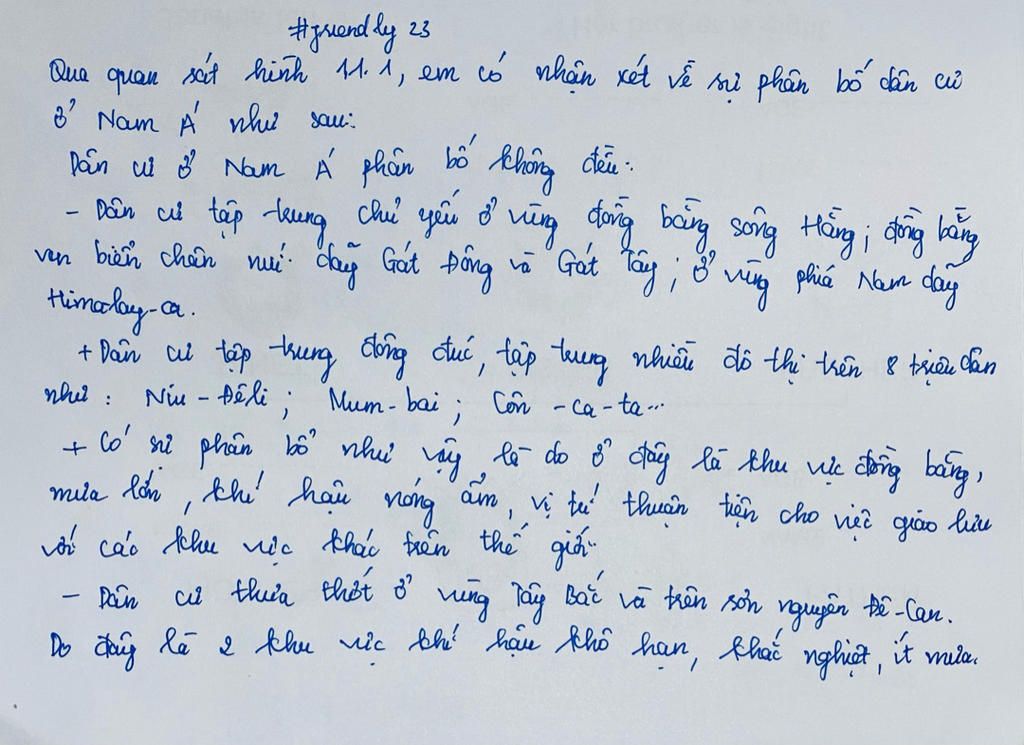 #friendly 23
Qua quan sát hình 11.1, em có nhận xét về sự phân bố dân cư
ở Nam Á như sau:
Dân cư ở Nam Á phân bố không đều.
- Dân cư tập trung chủ yếu ở vùng đồng bằng sông Hằng; đồng bằng
ven biển chân núi dãy Gát Đông và Gát Tây; ở vùng phía Nam dãy
Himalay-a.
+ Dân cư tập trung đông đúc, tập trung nhiều đô thị trên 8 triệu dân
như: Niu-Đêli; Mum-bai; Côn-ca-ta...
+ Có sự phân bổ như vậy là do ở đây là khu vực đồng bằng,
mưa lớn, khí hậu nóng ẩm, vị trí thuận tiện cho việc giao lưu
với các khu vực khác trên thế giới.
- Dân cư thưa thớt ở vùng Tây Bắc và trên sơn nguyên Đê-Can.
Do đây là 2 khu vực khí hậu khô hạn, khắc nghiệt, ít mưa.